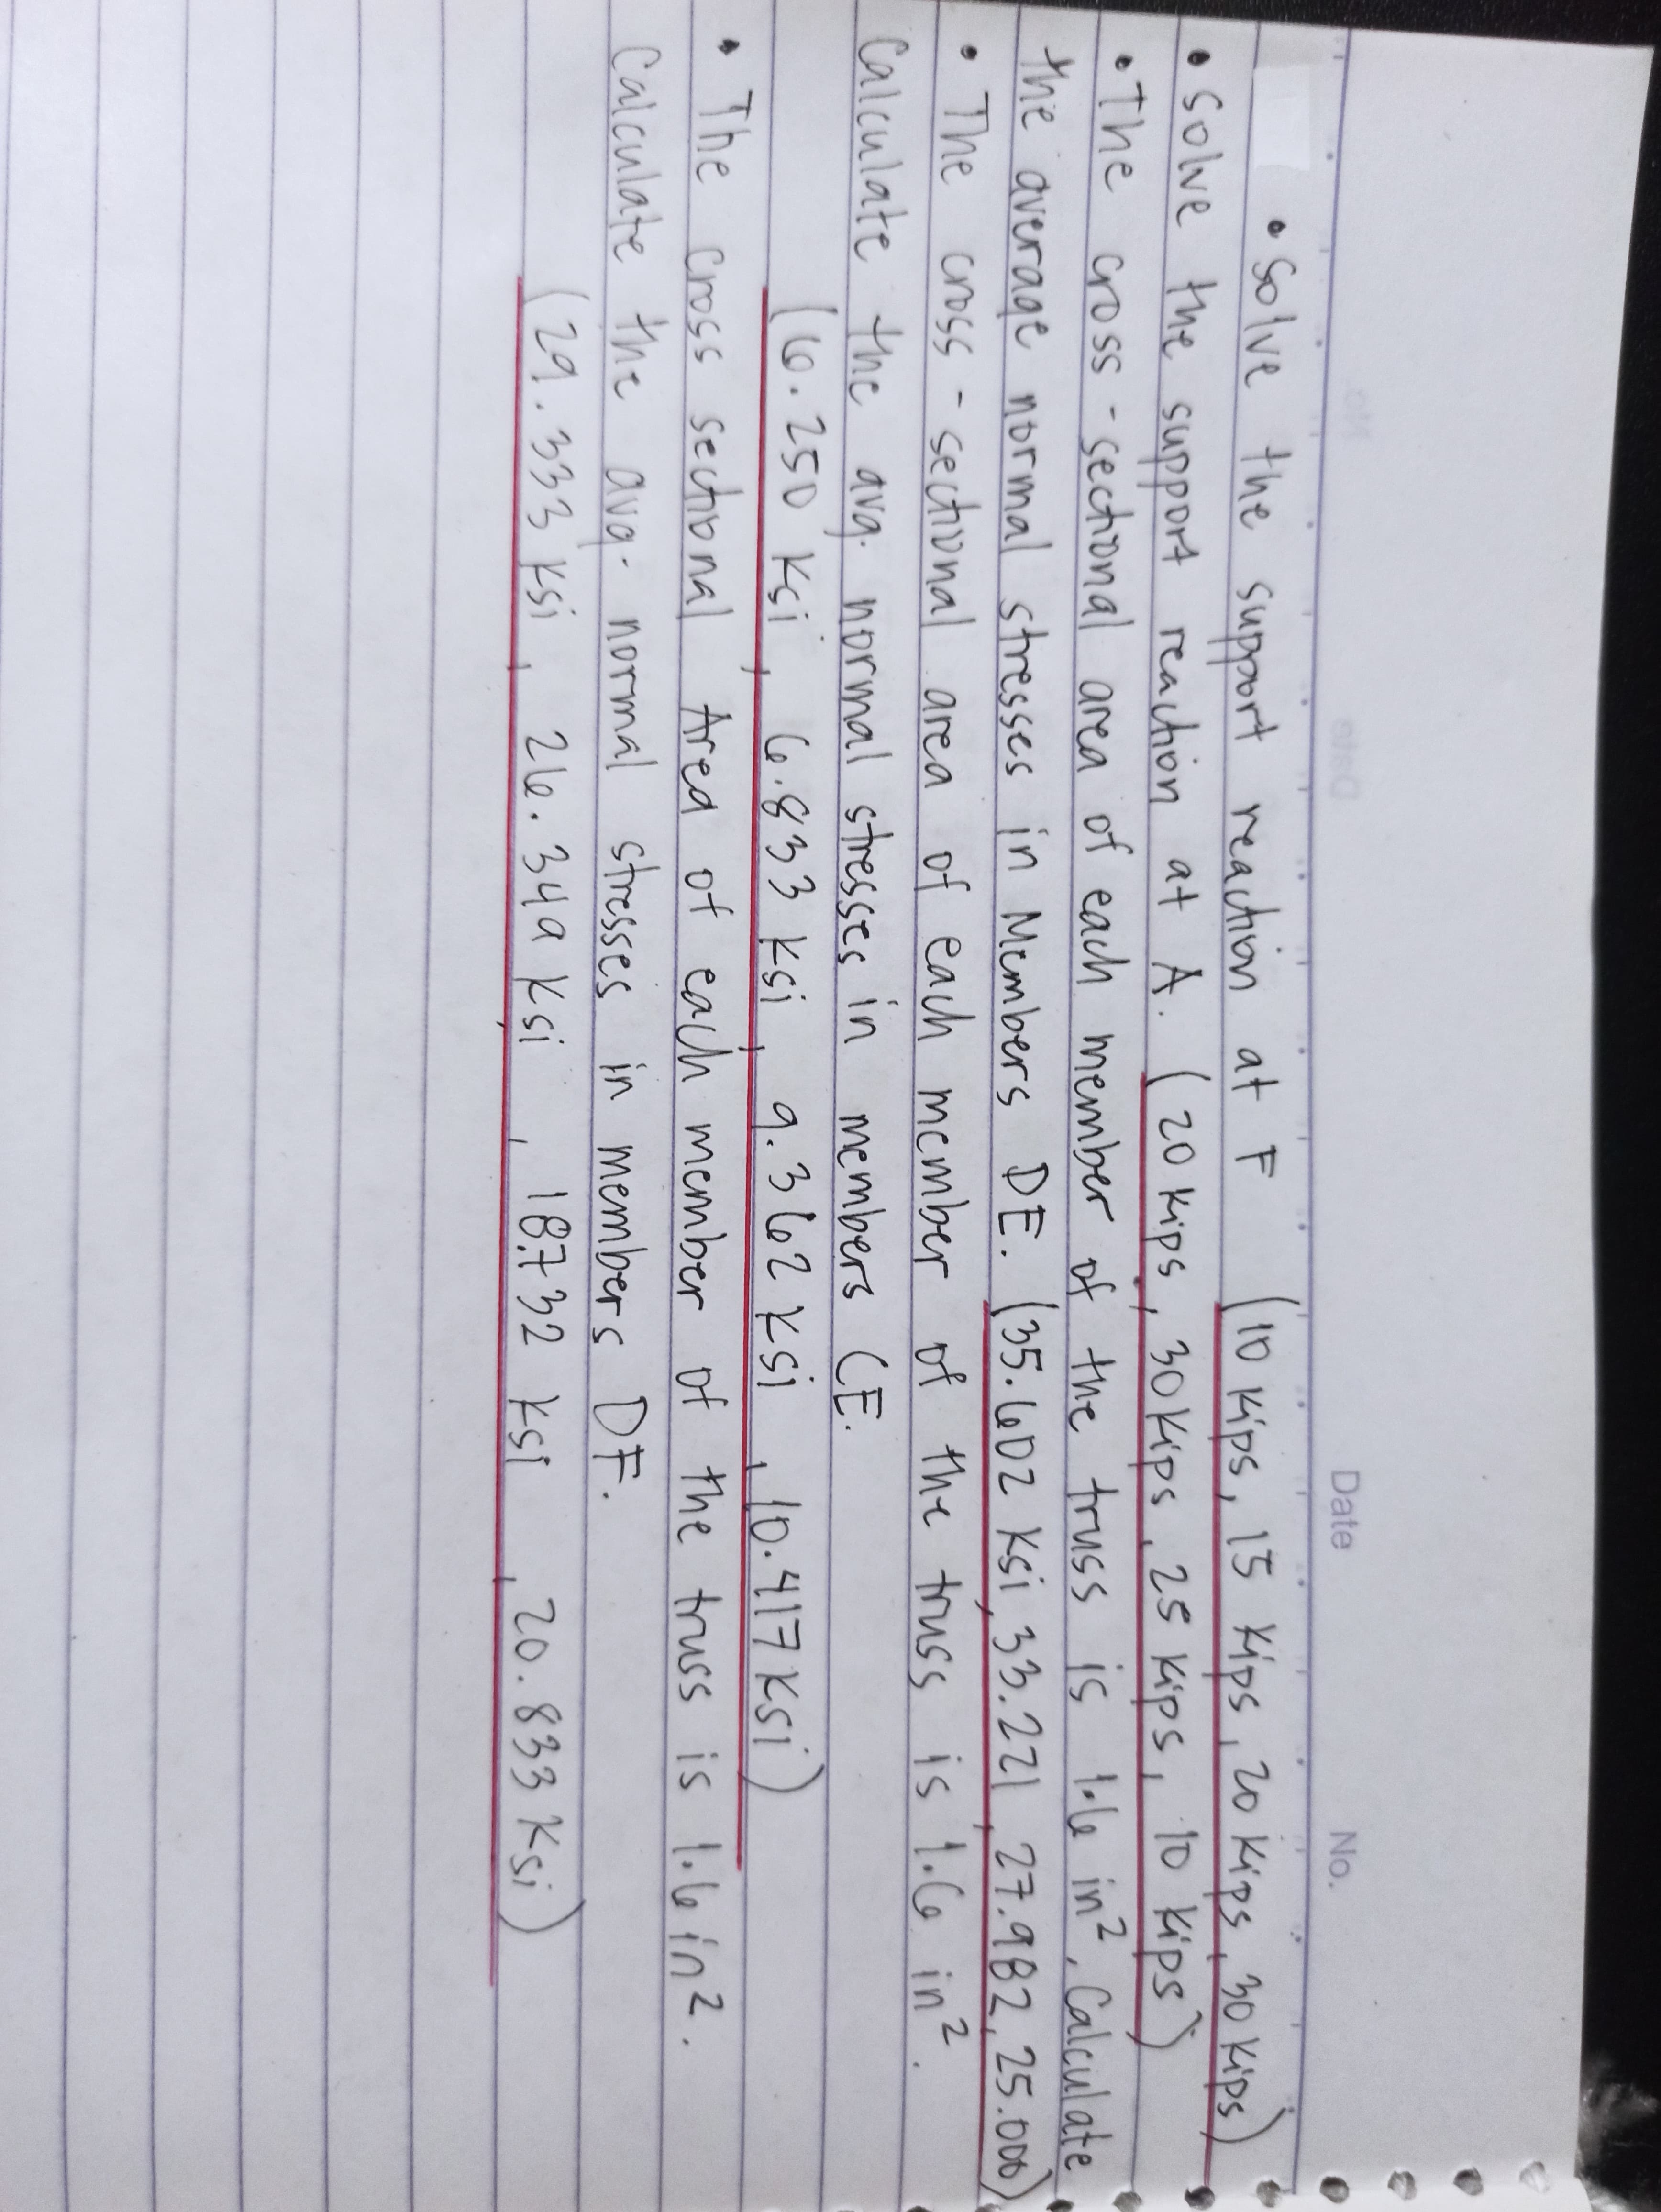 Date No.
• Solve the support reaction at F (10 kips, 15 kips, 20 kips, 30 kips)
• Solve the support reaction at A. (20 kips, 30 kips, 25 kips, 10 kips)
• The cross-sectional area of each member of the truss is 1.6 in², Calculate
the average normal stresses in Members DE. (35.602 ksi, 33.221, 27.982, 25.000)
• The cross-sectional area of each member of the truss is 1.6 in².
Calculate the avg. normal stresses in members CE.
(6.250 ksi, 6.833 ksi, 9.362 ksi, 10.417 ksi)
• The cross sectional Area of each member of the truss is 1.6 in².
Calculate the avg. normal stresses in members DF.
(29.333 ksi, 26.349 ksi, 18.732 ksi, 20.833 ksi)